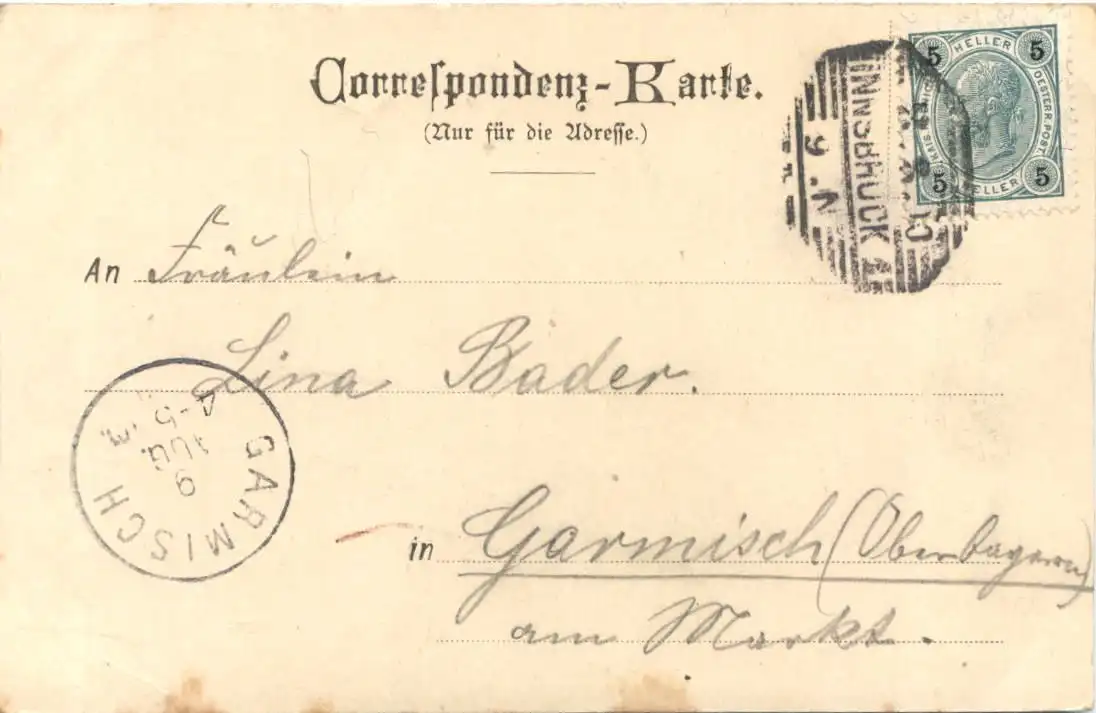 Correspondenz-Karte.
(Nur für die Adresse.)
5 HELLER 5
KAIS. OESTERR. POST.
5 HELLER 5
INNSBRUCK 1
9. V
An Fräulein
Lina Bader.
GARMISCH
9
AUG.
4-5
in Garmisch (Oberbayern)
am Markt.